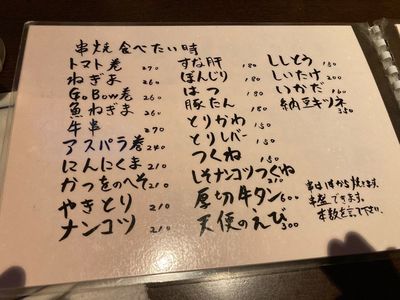 串焼 食べたい時
トマト巻 270
ねぎま 260
GoBow巻 260
魚ねぎま 260
牛串 270
アスパラ巻 240
にんにくま 210
かつをのへそ 210
やきとり 210
ナンコツ 210
すな肝 180
ぼんじり 180
はつ 180
豚たん 180
とりかわ 150
とりレバー 150
つくね 150
しそナンコツつくね 210
厚切牛タン 600
天使のえび 500
ししとう 150
しいたけ 200
いかだ 160
納豆キツネ 350
串は1本から焼けます。
半盛できます。
本数を言って下さい。